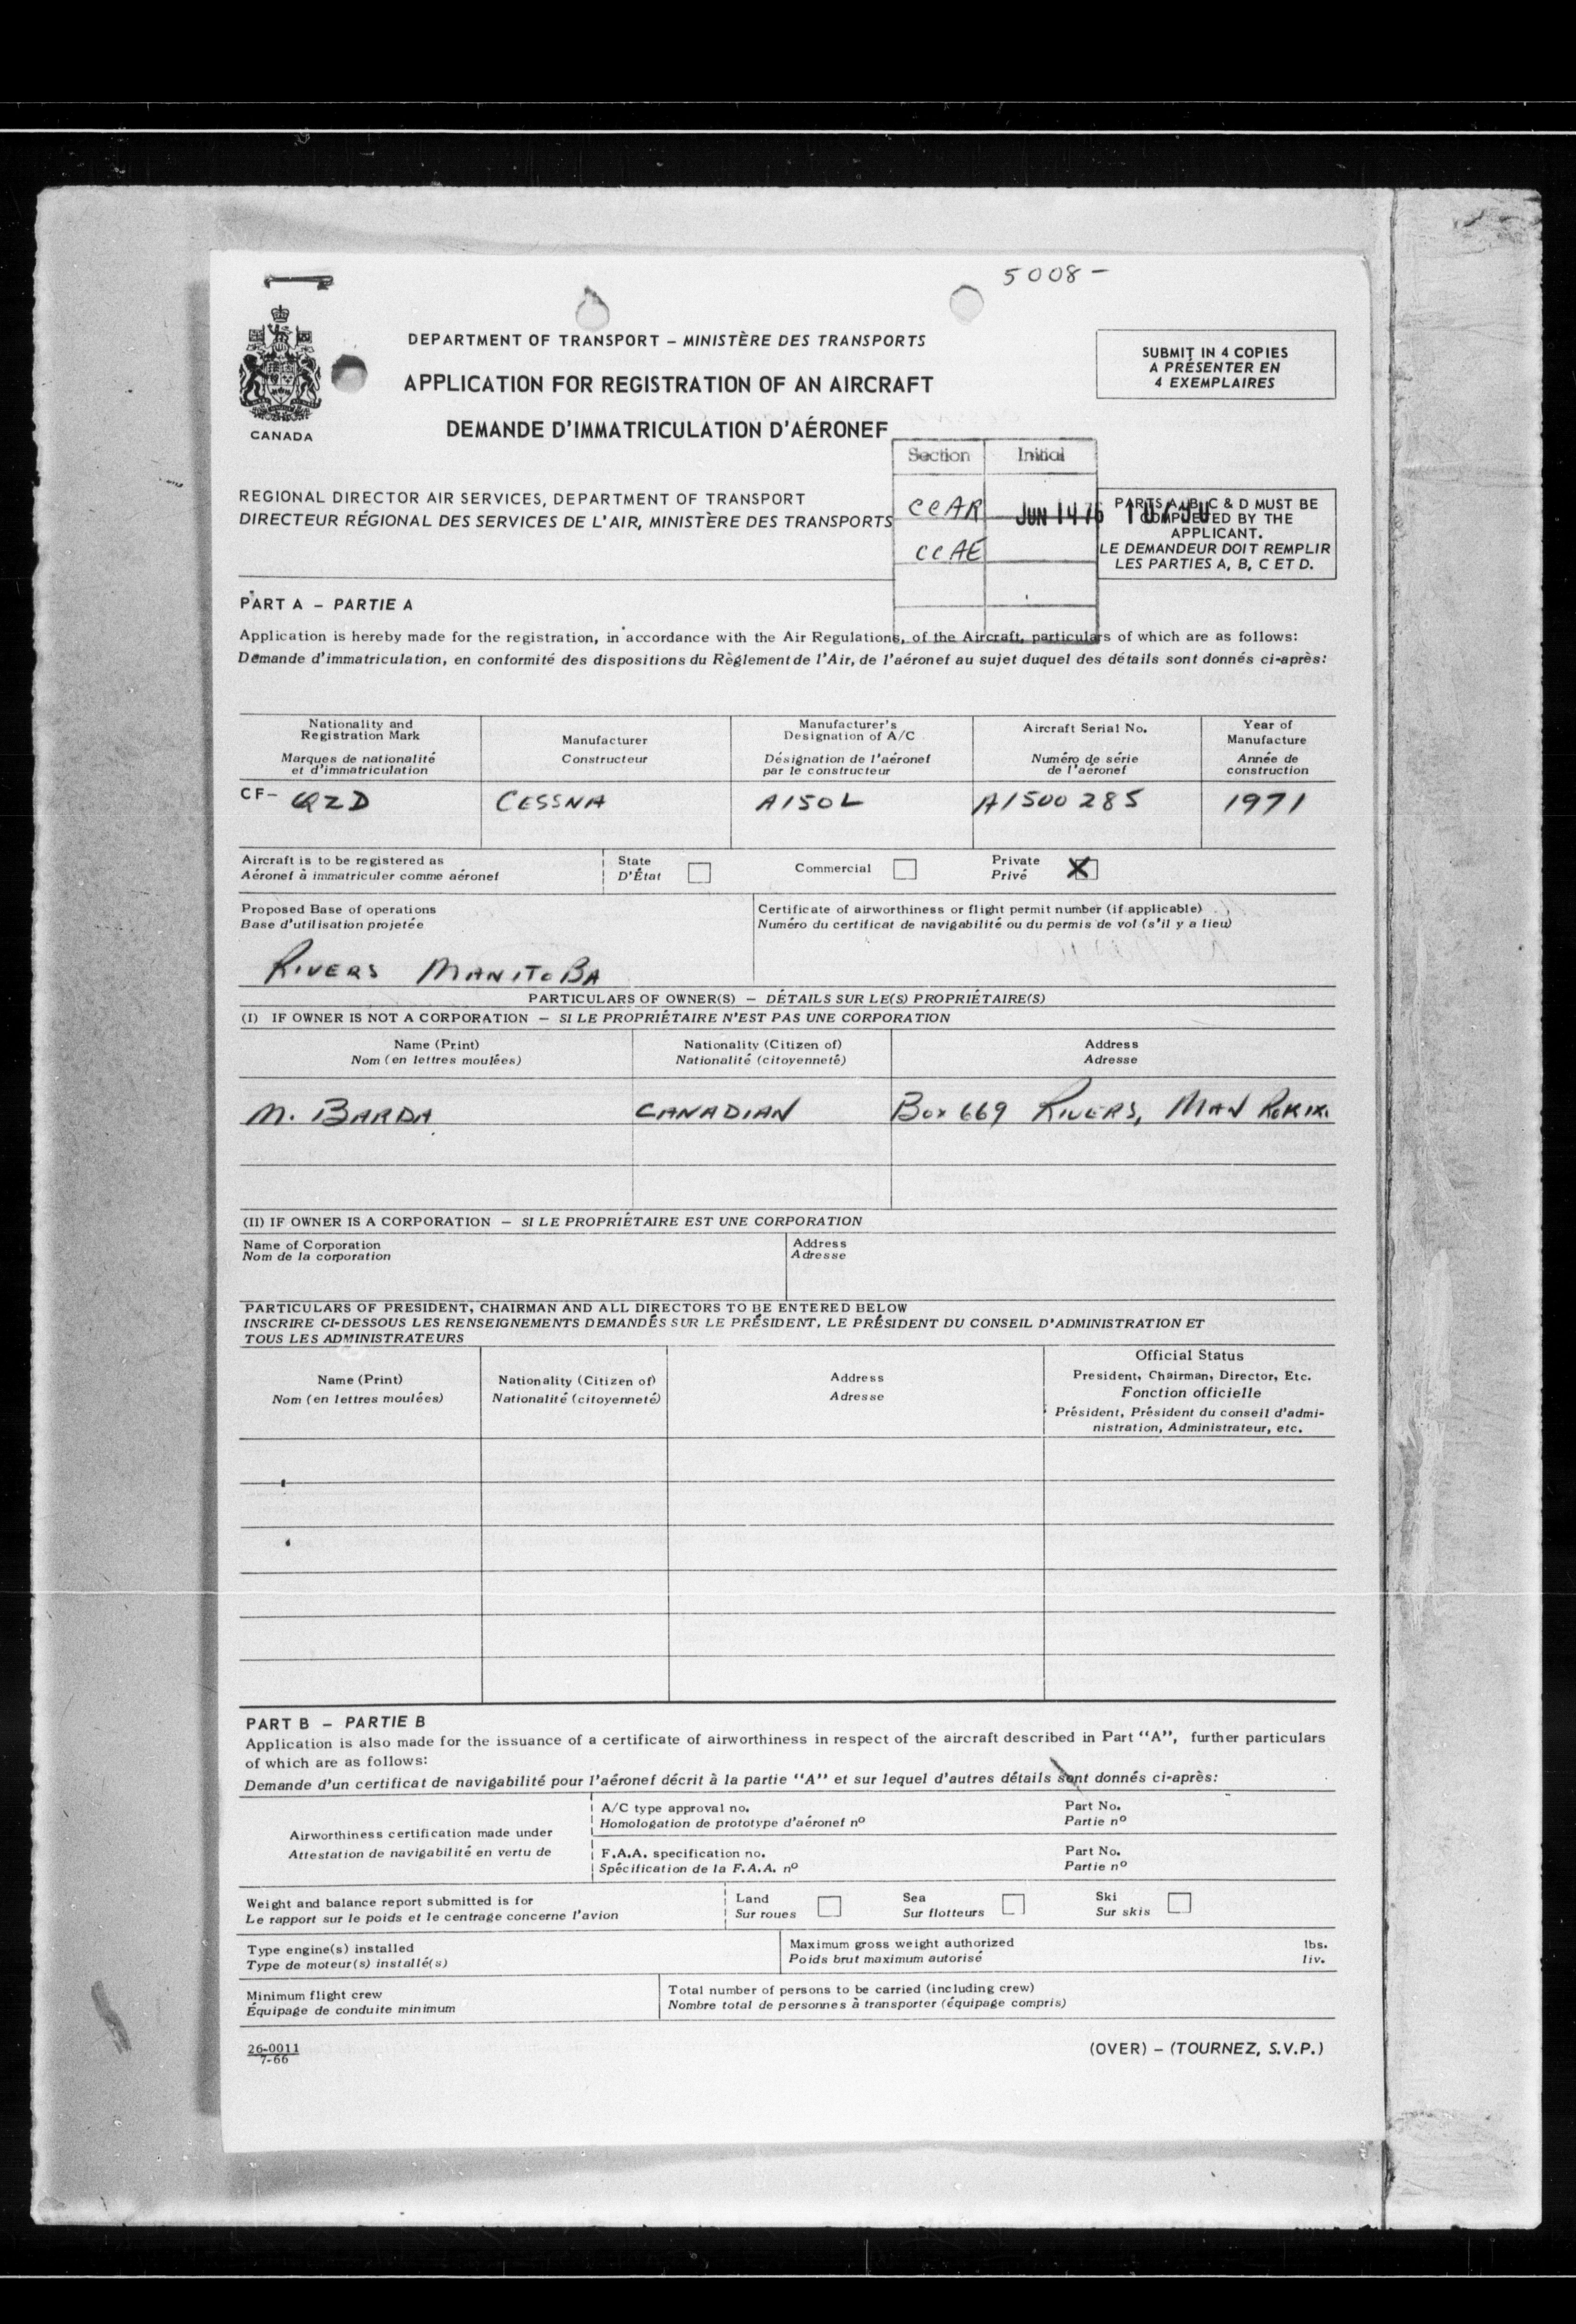 5008-
DEPARTMENT OF TRANSPORT – MINISTÈRE DES TRANSPORTS
APPLICATION FOR REGISTRATION OF AN AIRCRAFT
DEMANDE D'IMMATRICULATION D'AÉRONEF
CANADA
SUBMIT IN 4 COPIES
A PRÉSENTER EN
4 EXEMPLAIRES
Section Initial
CCAR JUN 14 76
CCAE
REGIONAL DIRECTOR AIR SERVICES, DEPARTMENT OF TRANSPORT
DIRECTEUR RÉGIONAL DES SERVICES DE L'AIR, MINISTÈRE DES TRANSPORTS
PARTS A, B, C & D MUST BE
COMPLETED BY THE
APPLICANT.
LE DEMANDEUR DOIT REMPLIR
LES PARTIES A, B, C ET D.
PART A – PARTIE A
Application is hereby made for the registration, in accordance with the Air Regulations, of the Aircraft, particulars of which are as follows:
Demande d'immatriculation, en conformité des dispositions du Règlement de l'Air, de l'aéronef au sujet duquel des détails sont donnés ci-après:
Nationality and
Registration Mark
Marques de nationalité
et d'immatriculation
Manufacturer
Constructeur
Manufacturer's
Designation of A/C
Désignation de l'aéronef
par le constructeur
Aircraft Serial No.
Numéro de série
de l'aéronef
Year of
Manufacture
Année de
construction
CF- QZD CESSNA A150L A1500285 1971
Aircraft is to be registered as
Aéronef à immatriculer comme aéronef
State
D'État
Commercial
Private
Privé
X
Proposed Base of operations
Base d'utilisation projetée
RIVERS MANITOBA
Certificate of airworthiness or flight permit number (if applicable)
Numéro du certificat de navigabilité ou du permis de vol (s'il y a lieu)
PARTICULARS OF OWNER(S) – DÉTAILS SUR LE(S) PROPRIÉTAIRE(S)
(I) IF OWNER IS NOT A CORPORATION – SI LE PROPRIÉTAIRE N'EST PAS UNE CORPORATION
Name (Print)
Nom (en lettres moulées)
Nationality (Citizen of)
Nationalité (citoyenneté)
Address
Adresse
M. BARDA CANADIAN Box 669 RIVERS, MAN
(II) IF OWNER IS A CORPORATION – SI LE PROPRIÉTAIRE EST UNE CORPORATION
Name of Corporation
Nom de la corporation
Address
Adresse
PARTICULARS OF PRESIDENT, CHAIRMAN AND ALL DIRECTORS TO BE ENTERED BELOW
INSCRIRE CI-DESSOUS LES RENSEIGNEMENTS DEMANDÉS SUR LE PRÉSIDENT, LE PRÉSIDENT DU CONSEIL D'ADMINISTRATION ET
TOUS LES ADMINISTRATEURS
Name (Print)
Nom (en lettres moulées)
Nationality (Citizen of)
Nationalité (citoyenneté)
Address
Adresse
Official Status
President, Chairman, Director, Etc.
Fonction officielle
Président, Président du conseil d'admi-
nistration, Administrateur, etc.
PART B – PARTIE B
Application is also made for the issuance of a certificate of airworthiness in respect of the aircraft described in Part "A", further particulars
of which are as follows:
Demande d'un certificat de navigabilité pour l'aéronef décrit à la partie "A" et sur lequel d'autres détails sont donnés ci-après:
Airworthiness certification made under
Attestation de navigabilité en vertu de
A/C type approval no.
Homologation de prototype d'aéronef nº
Part No.
Partie nº
F.A.A. specification no.
Spécification de la F.A.A. nº
Part No.
Partie nº
Weight and balance report submitted is for
Le rapport sur le poids et le centrage concerne l'avion
Land
Sur roues
Sea
Sur flotteurs
Ski
Sur skis
Type engine(s) installed
Type de moteur(s) installé(s)
Maximum gross weight authorized
Poids brut maximum autorisé
lbs.
liv.
Minimum flight crew
Équipage de conduite minimum
Total number of persons to be carried (including crew)
Nombre total de personnes à transporter (équipage compris)
26-0011
7-66
(OVER) – (TOURNEZ, S.V.P.)